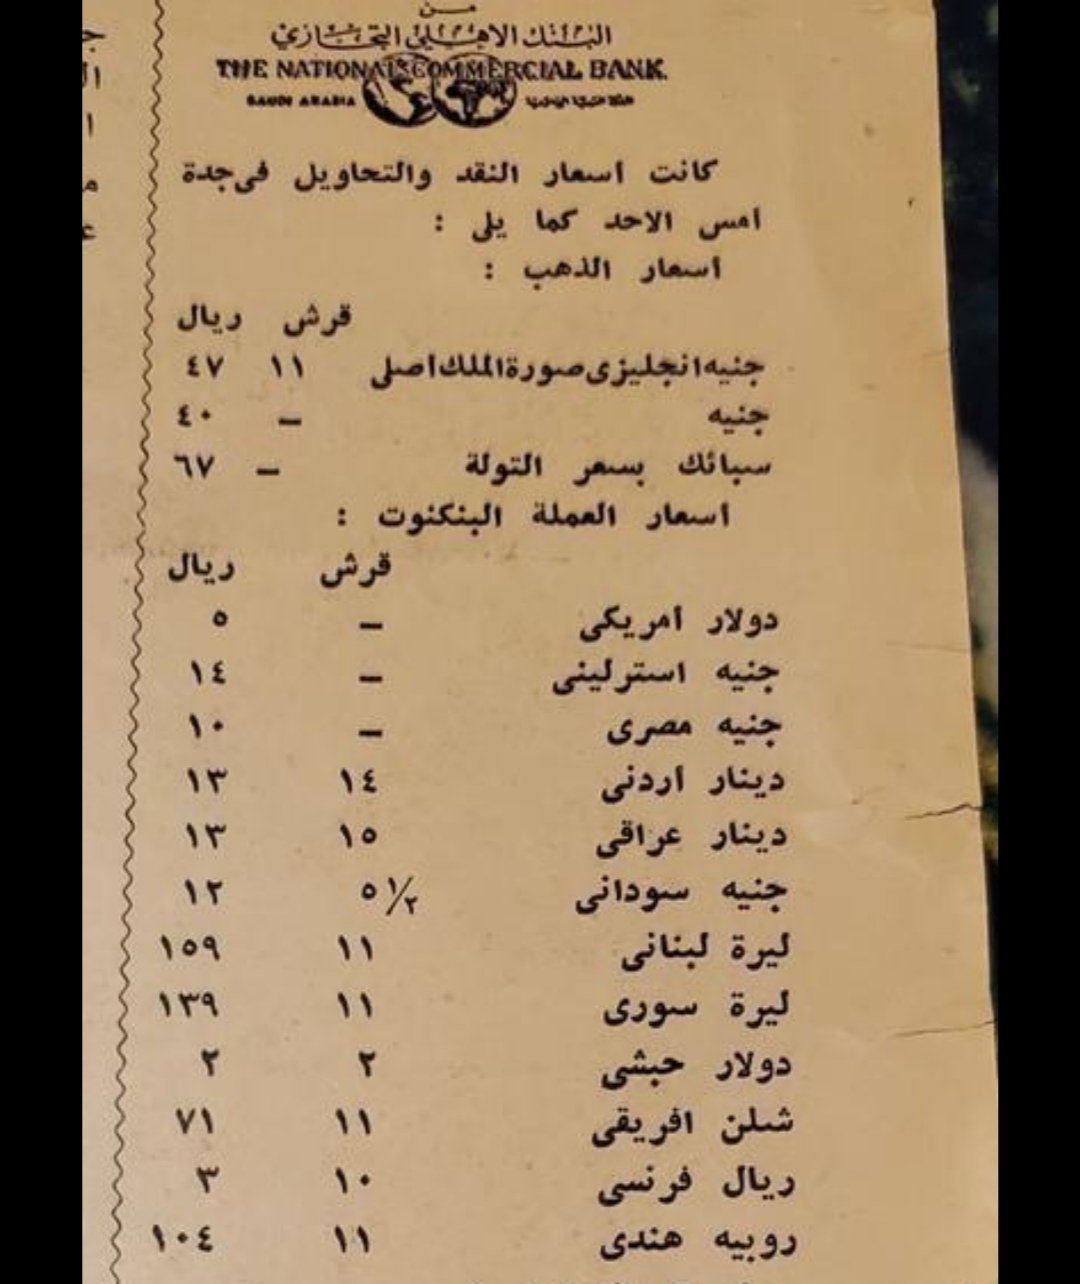 من
البنك الاهلي التجاري
THE NATIONAL COMMERCIAL BANK.
SAUDI ARABIA
كانت اسعار النقد والتحاويل فى جدة
امس الاحد كما يلى :
اسعار الذهب :
قرش ريال
جنيه انجليزى صورة الملك اصلى ١١ ٤٧
جنيه – ٤٠
سبائك بسعر التولة – ٦٧
اسعار العملة البنكنوت :
قرش ريال
دولار امريكى – ٥
جنيه استرلينى – ١٤
جنيه مصرى – ١٠
دينار اردنى ١٤ ١٣
دينار عراقى ١٥ ١٣
جنيه سودانى ٥ ١/٢ ١٢
ليرة لبنانى ١١ ١٥٩
ليرة سورى ١١ ١٣٩
دولار حبشى ٢ ٢
شلن افريقى ١١ ٧١
ريال فرنسى ١٠ ٣
روبيه هندى ١١ ١٠٤